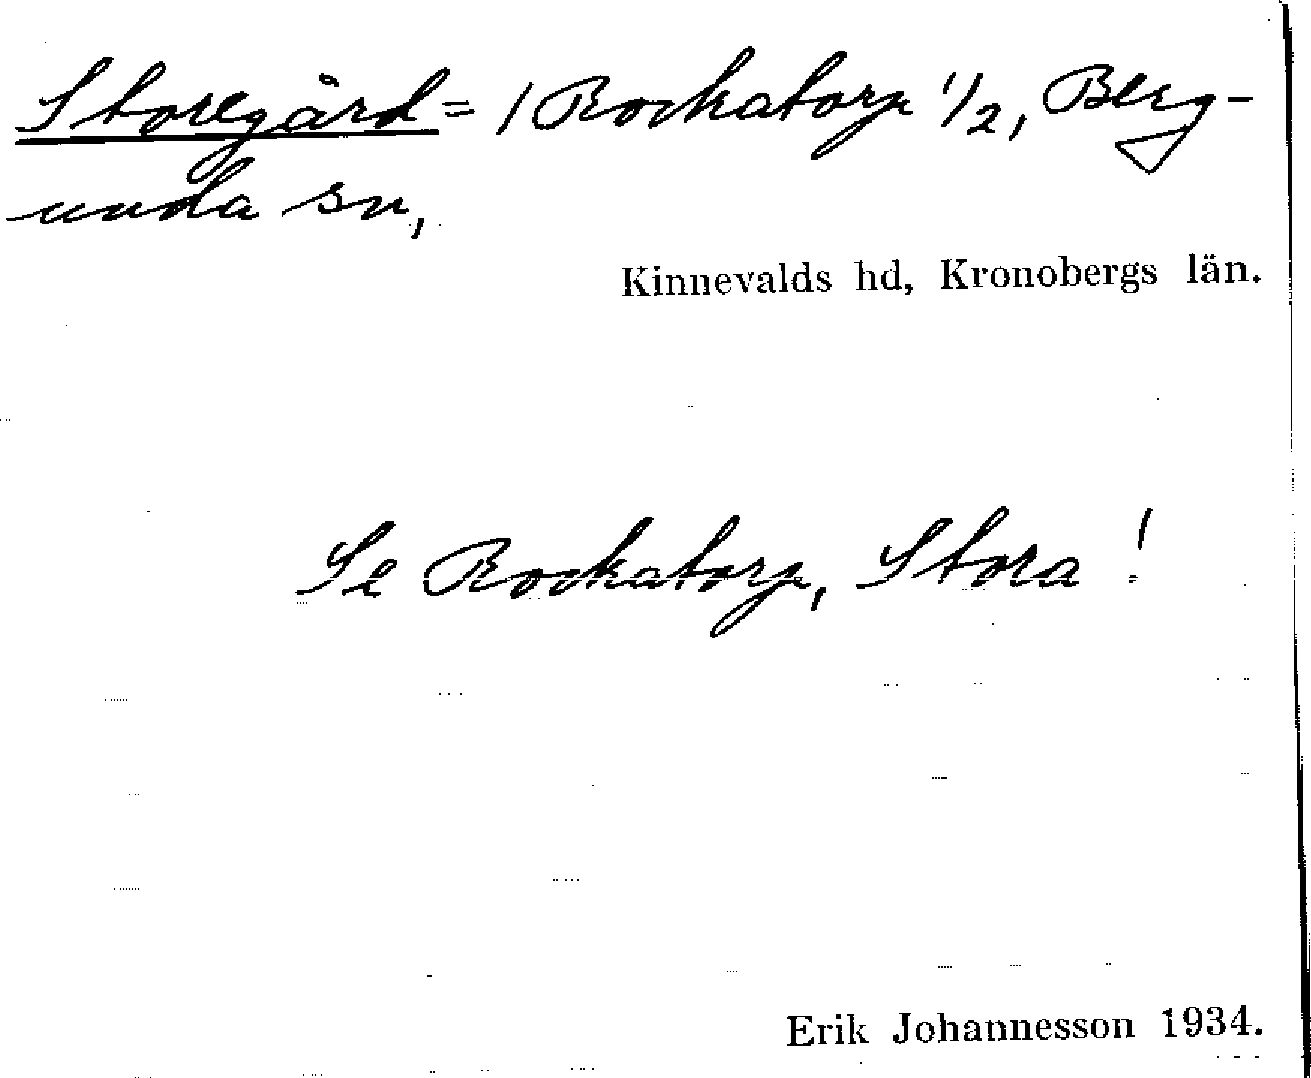 Storegård = / Rockatorp 1/2, Berg-
unda sn,
Kinnevalds hd, Kronobergs län.
Se Rockatorp, Stora !
Erik Johannesson 1934.